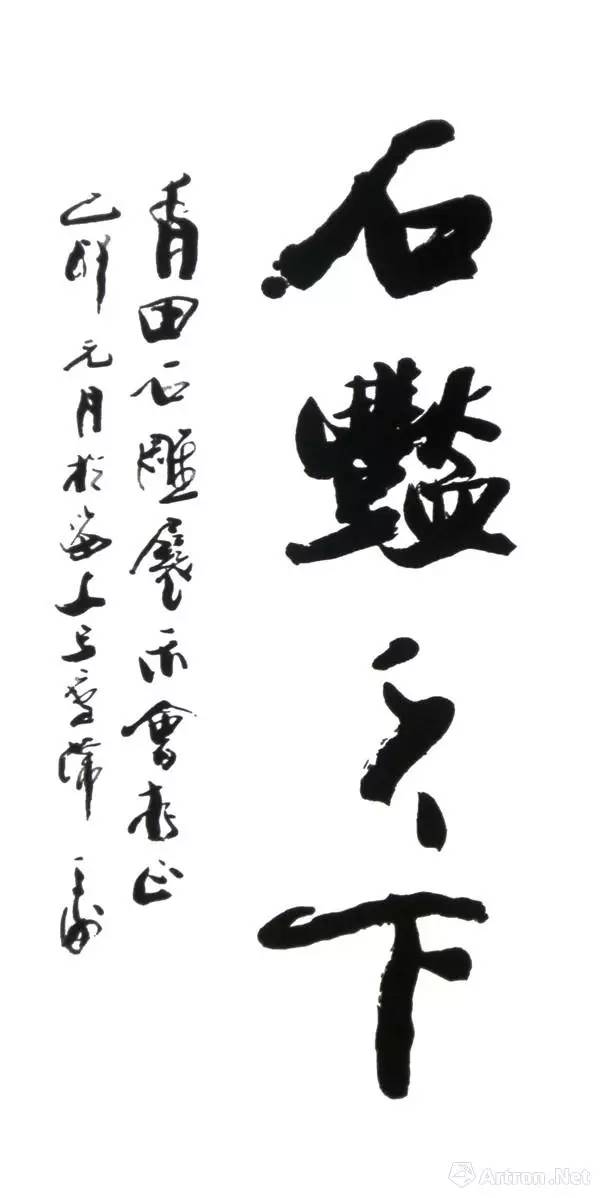 石豔天下
青田石雕展示會存正
元月於海上
Artron.Net